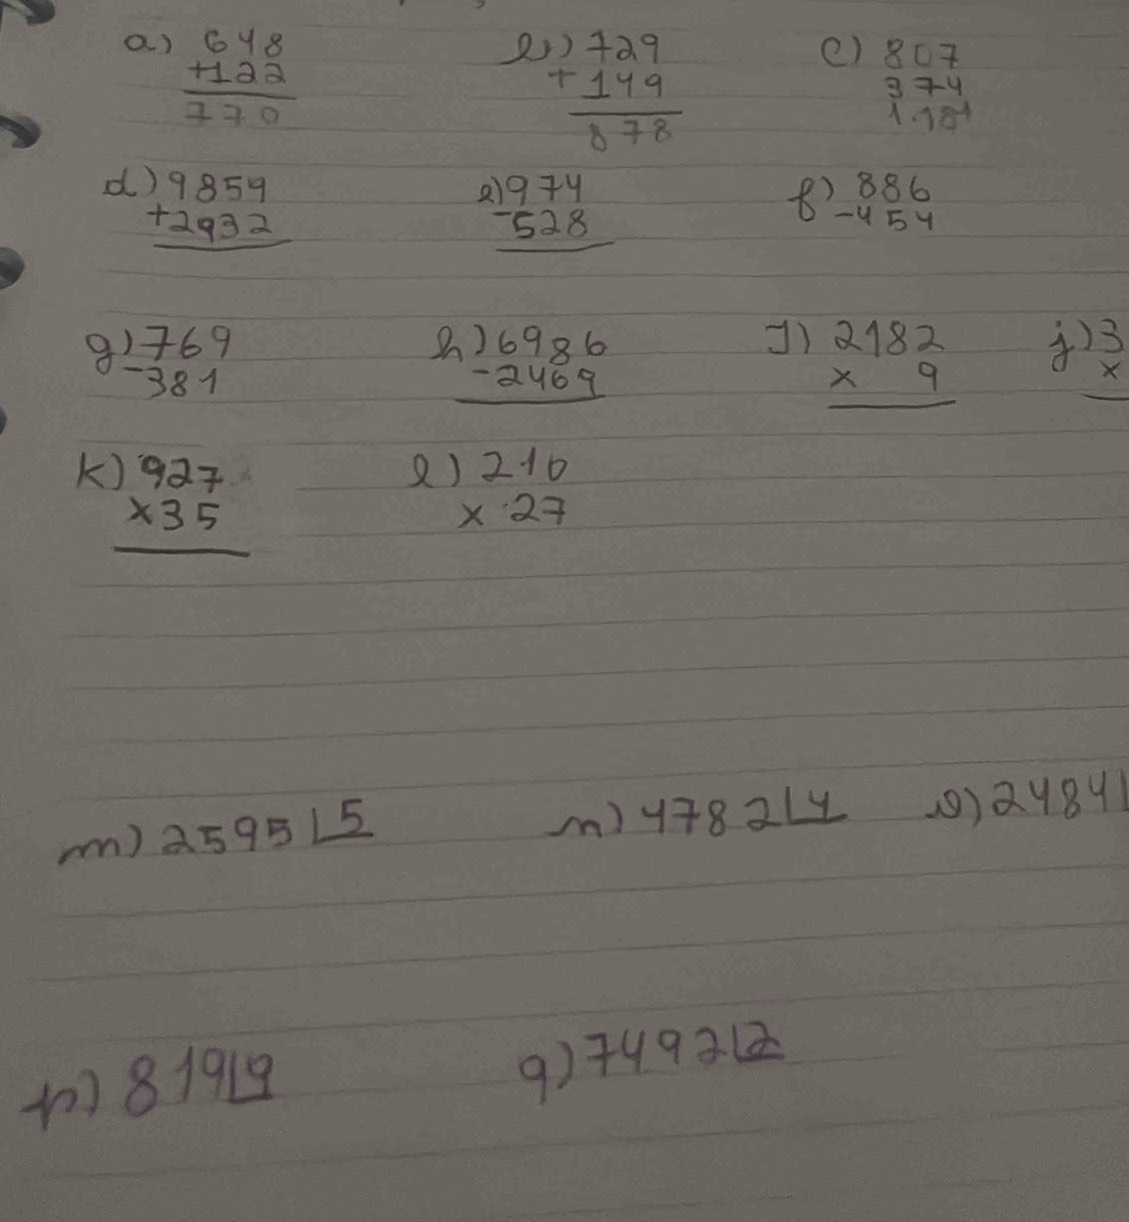 a) 648 b) 729 c) 807
+122 +149 374
770 878 1.181
d) 9859 e) 974 f) 886
+2932 -528 -454
g) 769 h) 6986 I) 2182 j) 3
-381 -2469 x 9 x
K) 927 l) 210
x35 x 27
m) 2595 5 n) 4782 4 o) 2484
p) 819 9 q) 7492 2